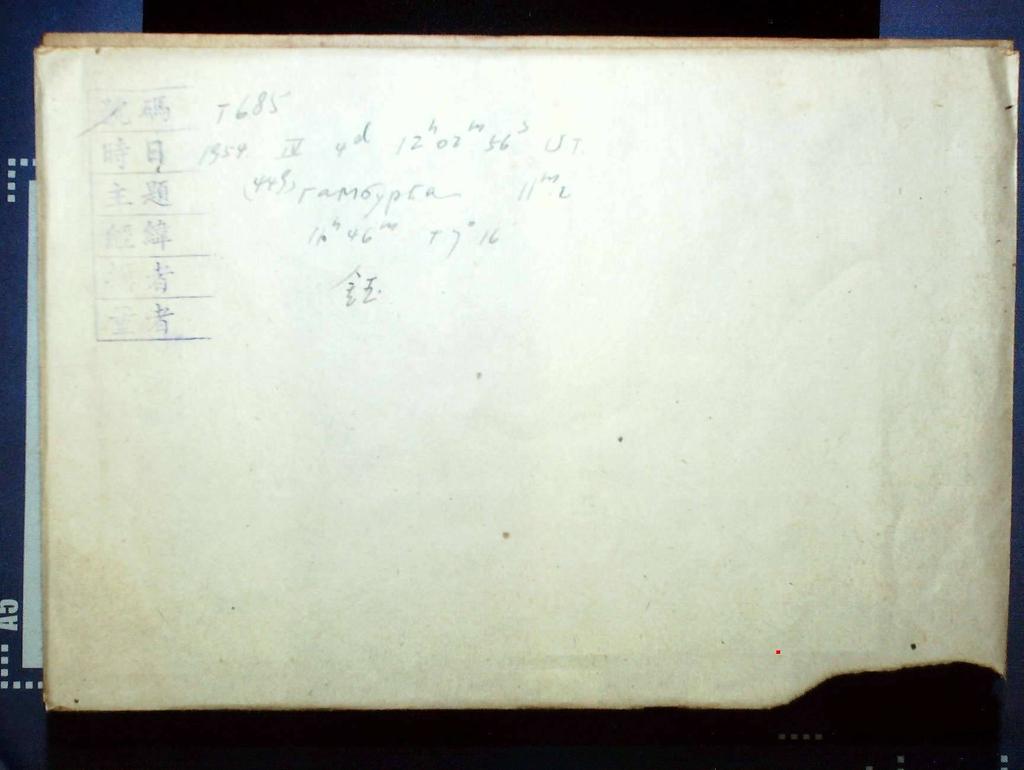 號碼 T685
時日 1954 IV 4d 12h 02m 56s UT.
主題 (449) гамбурга 11m.2
經緯 16h 46m +7° 16
者 鈺
者
A5